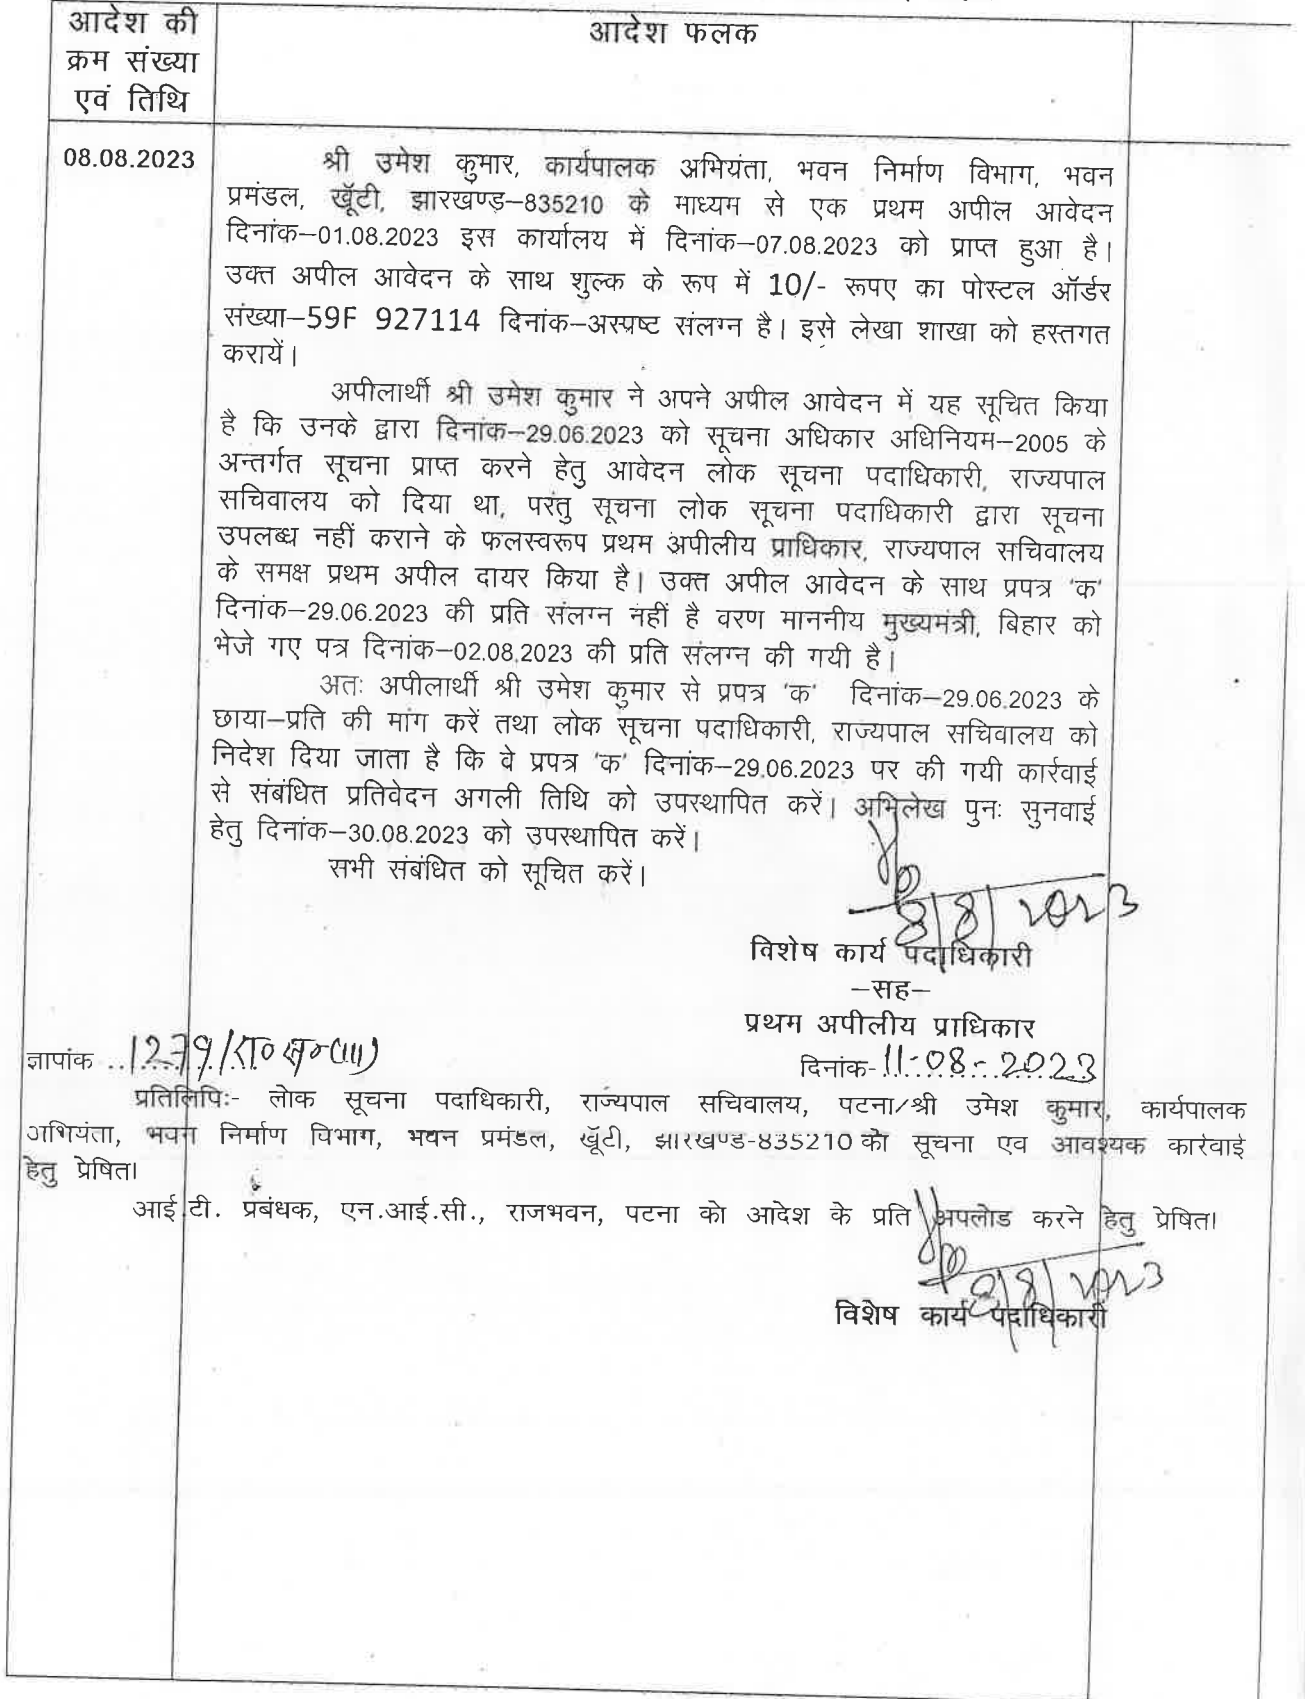 आदेश की
क्रम संख्या
एवं तिथि
आदेश फलक
08.08.2023
श्री उमेश कुमार, कार्यपालक अभियंता, भवन निर्माण विभाग, भवन
प्रमंडल, खूँटी, झारखण्ड–835210 के माध्यम से एक प्रथम अपील आवेदन
दिनांक–01.08.2023 इस कार्यालय में दिनांक–07.08.2023 को प्राप्त हुआ है।
उक्त अपील आवेदन के साथ शुल्क के रूप में 10/- रूपए का पोस्टल ऑर्डर
संख्या–59F 927114 दिनांक–अस्पष्ट संलग्न है। इसे लेखा शाखा को हस्तगत
करायें।
अपीलार्थी श्री उमेश कुमार ने अपने अपील आवेदन में यह सूचित किया
है कि उनके द्वारा दिनांक–29.06.2023 को सूचना अधिकार अधिनियम–2005 के
अन्तर्गत सूचना प्राप्त करने हेतु आवेदन लोक सूचना पदाधिकारी, राज्यपाल
सचिवालय को दिया था, परंतु सूचना लोक सूचना पदाधिकारी द्वारा सूचना
उपलब्ध नहीं कराने के फलस्वरूप प्रथम अपीलीय प्राधिकार, राज्यपाल सचिवालय
के समक्ष प्रथम अपील दायर किया है। उक्त अपील आवेदन के साथ प्रपत्र 'क'
दिनांक–29.06.2023 की प्रति संलग्न नहीं है वरण माननीय मुख्यमंत्री, बिहार को
भेजे गए पत्र दिनांक–02.08.2023 की प्रति संलग्न की गयी है।
अतः अपीलार्थी श्री उमेश कुमार से प्रपत्र 'क' दिनांक–29.06.2023 के
छाया–प्रति की मांग करें तथा लोक सूचना पदाधिकारी, राज्यपाल सचिवालय को
निदेश दिया जाता है कि वे प्रपत्र 'क' दिनांक–29.06.2023 पर की गयी कार्रवाई
से संबंधित प्रतिवेदन अगली तिथि को उपस्थापित करें। अभिलेख पुनः सुनवाई
हेतु दिनांक–30.08.2023 को उपस्थापित करें।
सभी संबंधित को सूचित करें।
8/8/2023
विशेष कार्य पदाधिकारी
–सह–
प्रथम अपीलीय प्राधिकार
ज्ञापांक ..1279/रा०स०(III)
दिनांक-11-08-2023
प्रतिलिपिः- लोक सूचना पदाधिकारी, राज्यपाल सचिवालय, पटना/श्री उमेश कुमार, कार्यपालक
अभियंता, भवन निर्माण विभाग, भवन प्रमंडल, खूँटी, झारखण्ड-835210 को सूचना एवं आवश्यक कार्रवाई
हेतु प्रेषित।
आई.टी. प्रबंधक, एन.आई.सी., राजभवन, पटना को आदेश के प्रति अपलोड करने हेतु प्रेषित।
8/8/2023
विशेष कार्य पदाधिकारी